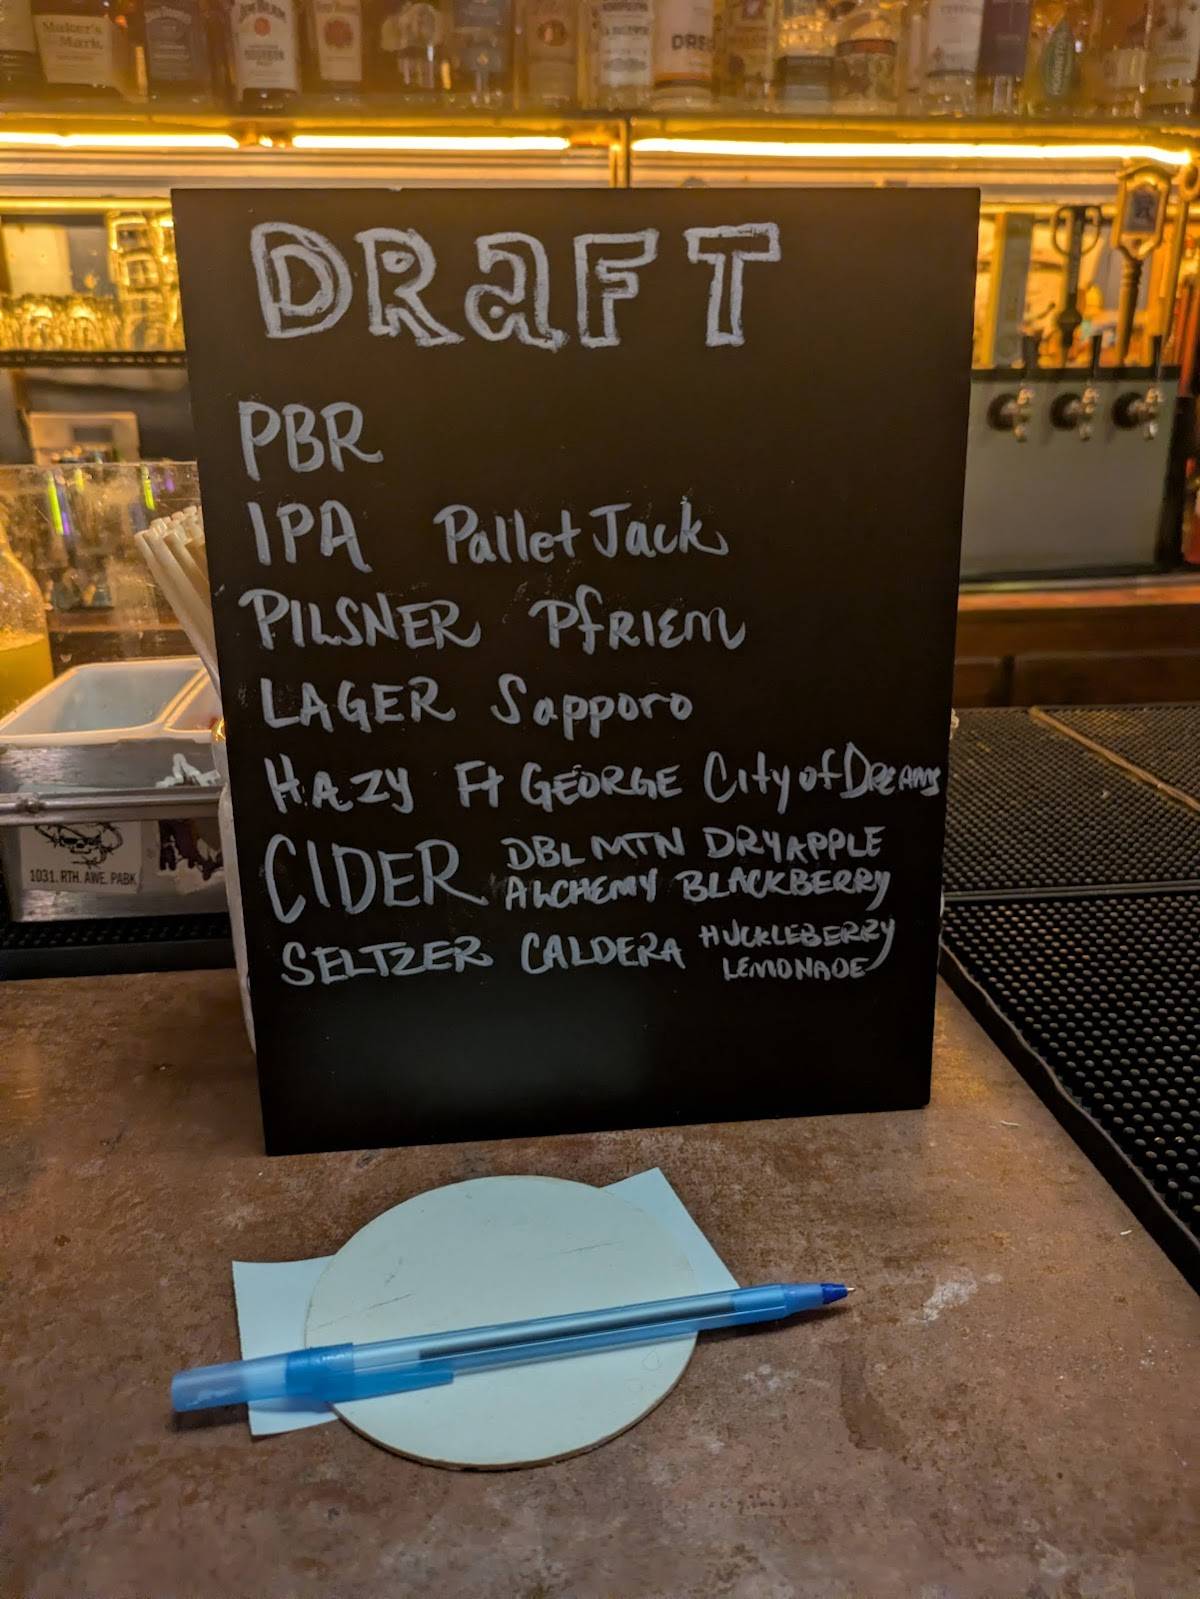 Maker's
Mark
JIM BEAM
DRAFT
PBR
IPA Pallet Jack
PILSNER PFRIEM
LAGER Sapporo
HAZY Ft GEORGE City of DREAMS
CIDER DBL MTN DRY APPLE
ALCHEMY BLACKBERRY
SELTZER CALDERA HUCKLEBERRY
LEMONADE